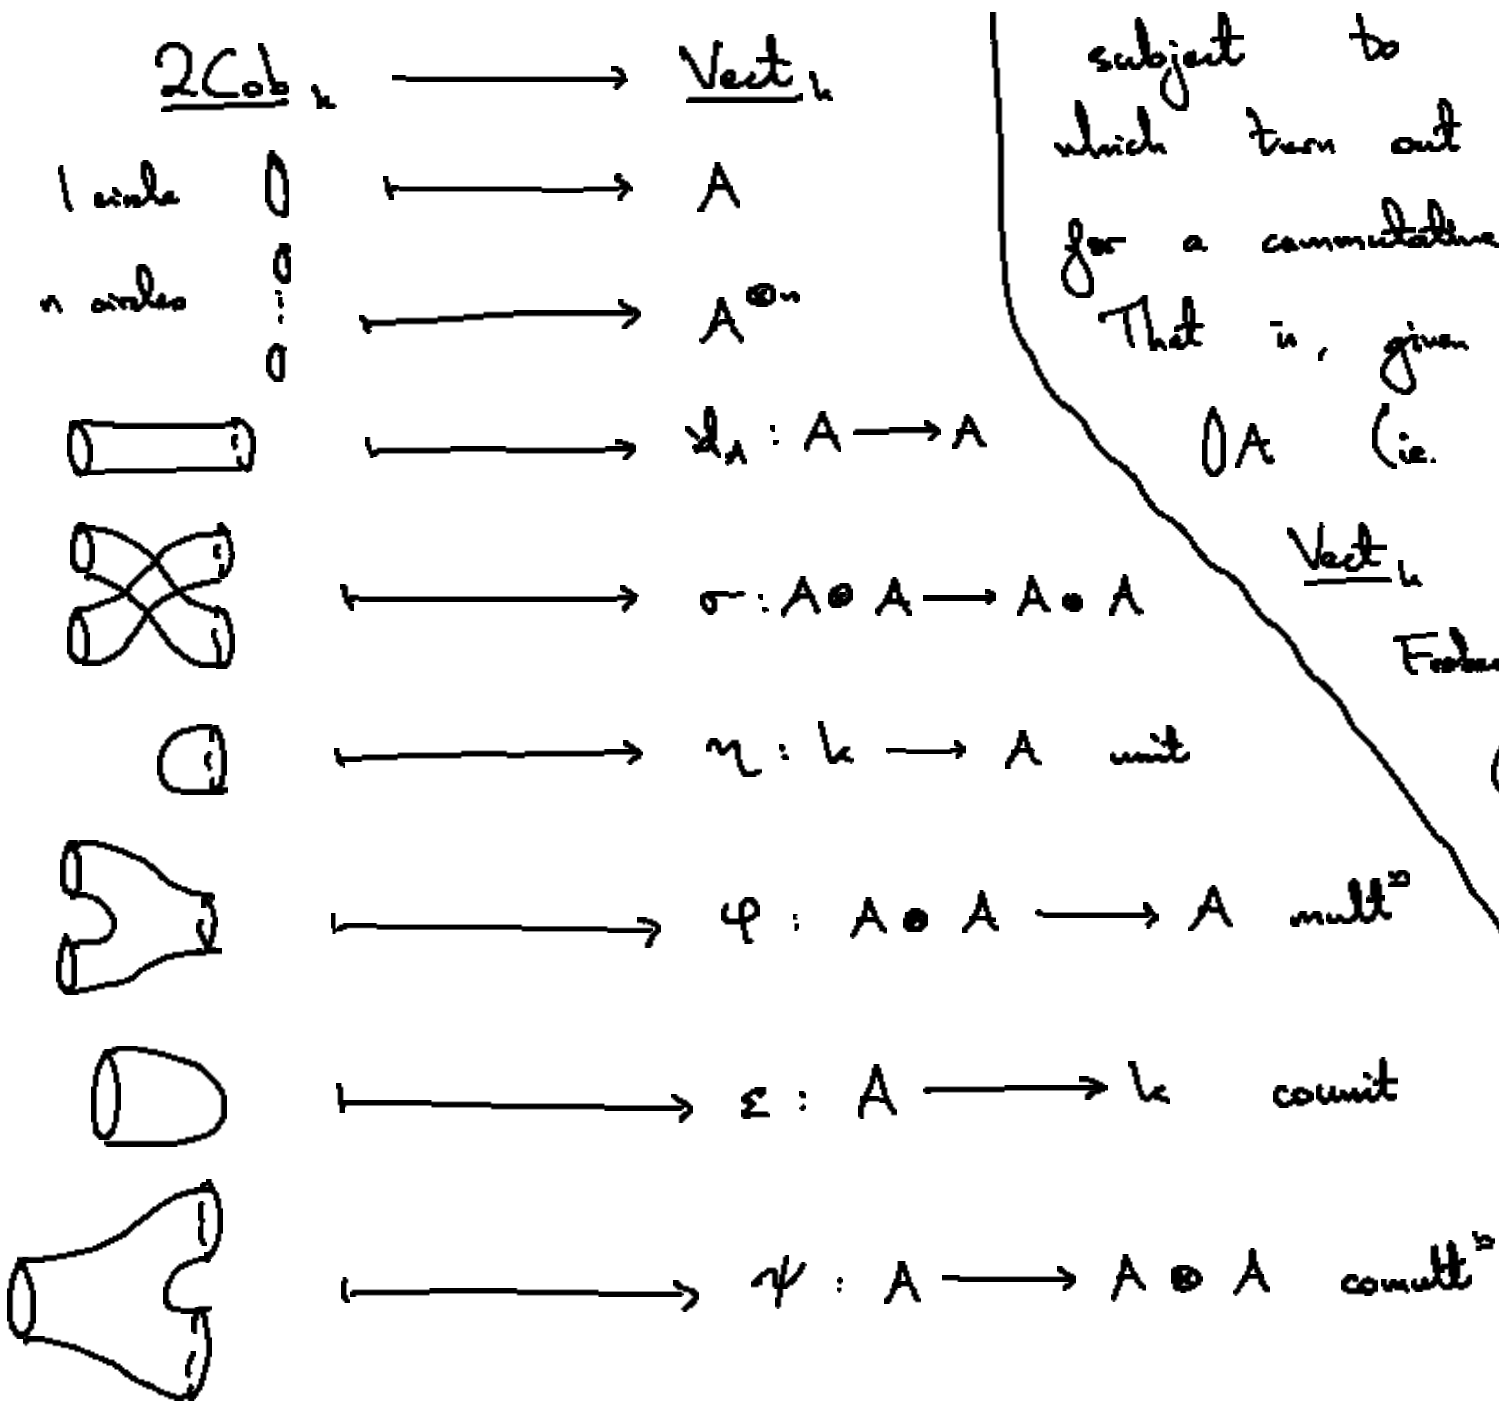 2Cob_k ⟶ Vect_k
1 circle ⟼ A
n circles ⋮ ⟼ A^{⊗n}
⟼ id_A : A ⟶ A
⟼ σ : A ⊗ A ⟶ A ⊗ A
⟼ η : k ⟶ A unit
⟼ φ : A ⊗ A ⟶ A mult^n
⟼ ε : A ⟶ k counit
⟼ ψ : A ⟶ A ⊗ A comult^n
subject to
which turn out
for a commutative
That is, given
A (ie.
Vect_k
(